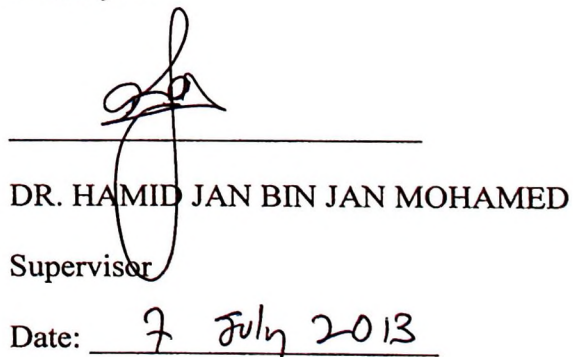 DR. HAMID JAN BIN JAN MOHAMED
Supervisor
Date: 7 July 2013